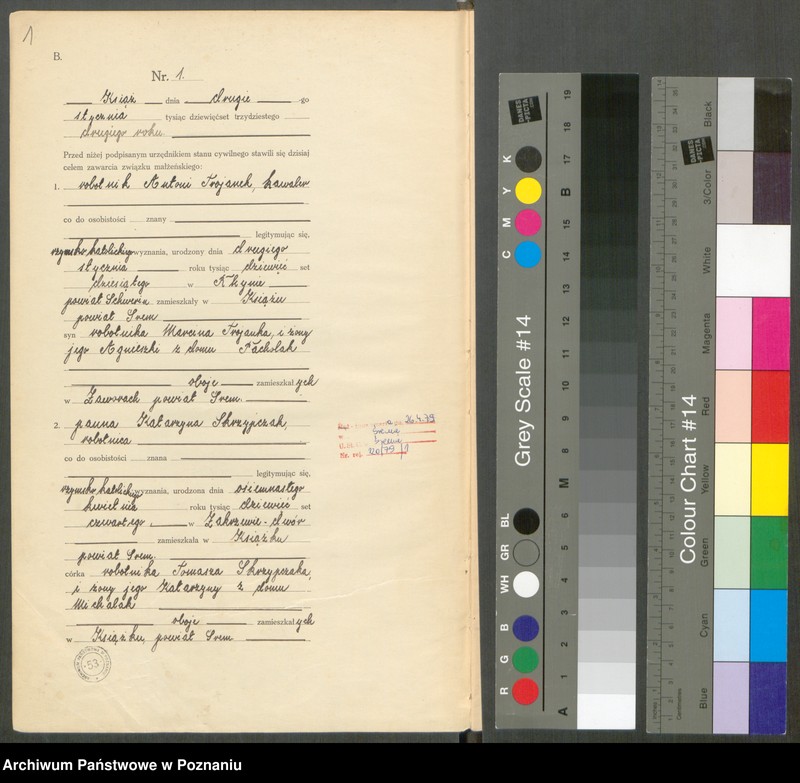 1
B.
Nr. 1.
Książ dnia drugie -go
stycznia tysiąc dziewięćset trzydziestego
drugiego roku
Przed niżej podpisanym urzędnikiem stanu cywilnego stawili się dzisiaj
celem zawarcia związku małżeńskiego:
1. robotnik Antoni Trojanek, kawaler
co do osobistości znany
legitymując się,
rzymsko katolickiego wyznania, urodzony dnia drugiego
stycznia roku tysiąc dziewięć set
dziesiątego w
powiat Schwerin zamieszkały w Książu
powiat Śrem
syn robotnika Marcina Trojanka, i żony
jego Agnieszki z domu Pacholak
oboje zamieszkałych
w Zaworach powiat Śrem.
2. panna Katarzyna Skrzypczak,
robotnica
co do osobistości znana
legitymując się,
rzymsko katolickiego wyznania, urodzona dnia osiemnastego
kwietnia roku tysiąc dziewięć set
czwartego, w Zakrzewie-dwór
zamieszkała w Książku
powiat Śrem.
córka robotnika Tomasza Skrzypczaka,
i żony jego Katarzyny z domu
Michalak
oboje zamieszkałych
w Książku, powiat Śrem
26.4.79
Nr. rej. 120/79
53
DANES-PICTA
Grey Scale #14
R G B WH GR BL C M Y K
A 1 2 3 4 5 6 M 8 9 10 11 12 13 14 15 B 17 18 19
DANES-PICTA
Colour Chart #14
Blue Cyan Green Yellow Red Magenta White 3/Color Black
Inches
Centimetres
Archiwum Państwowe w Poznaniu